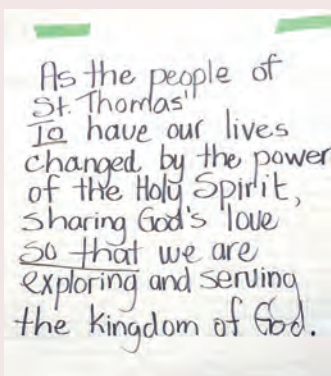 As the people of
St. Thomas'
To have our lives
changed by the power
of the Holy Spirit,
sharing God's love
so that we are
exploring and serving
the kingdom of God.